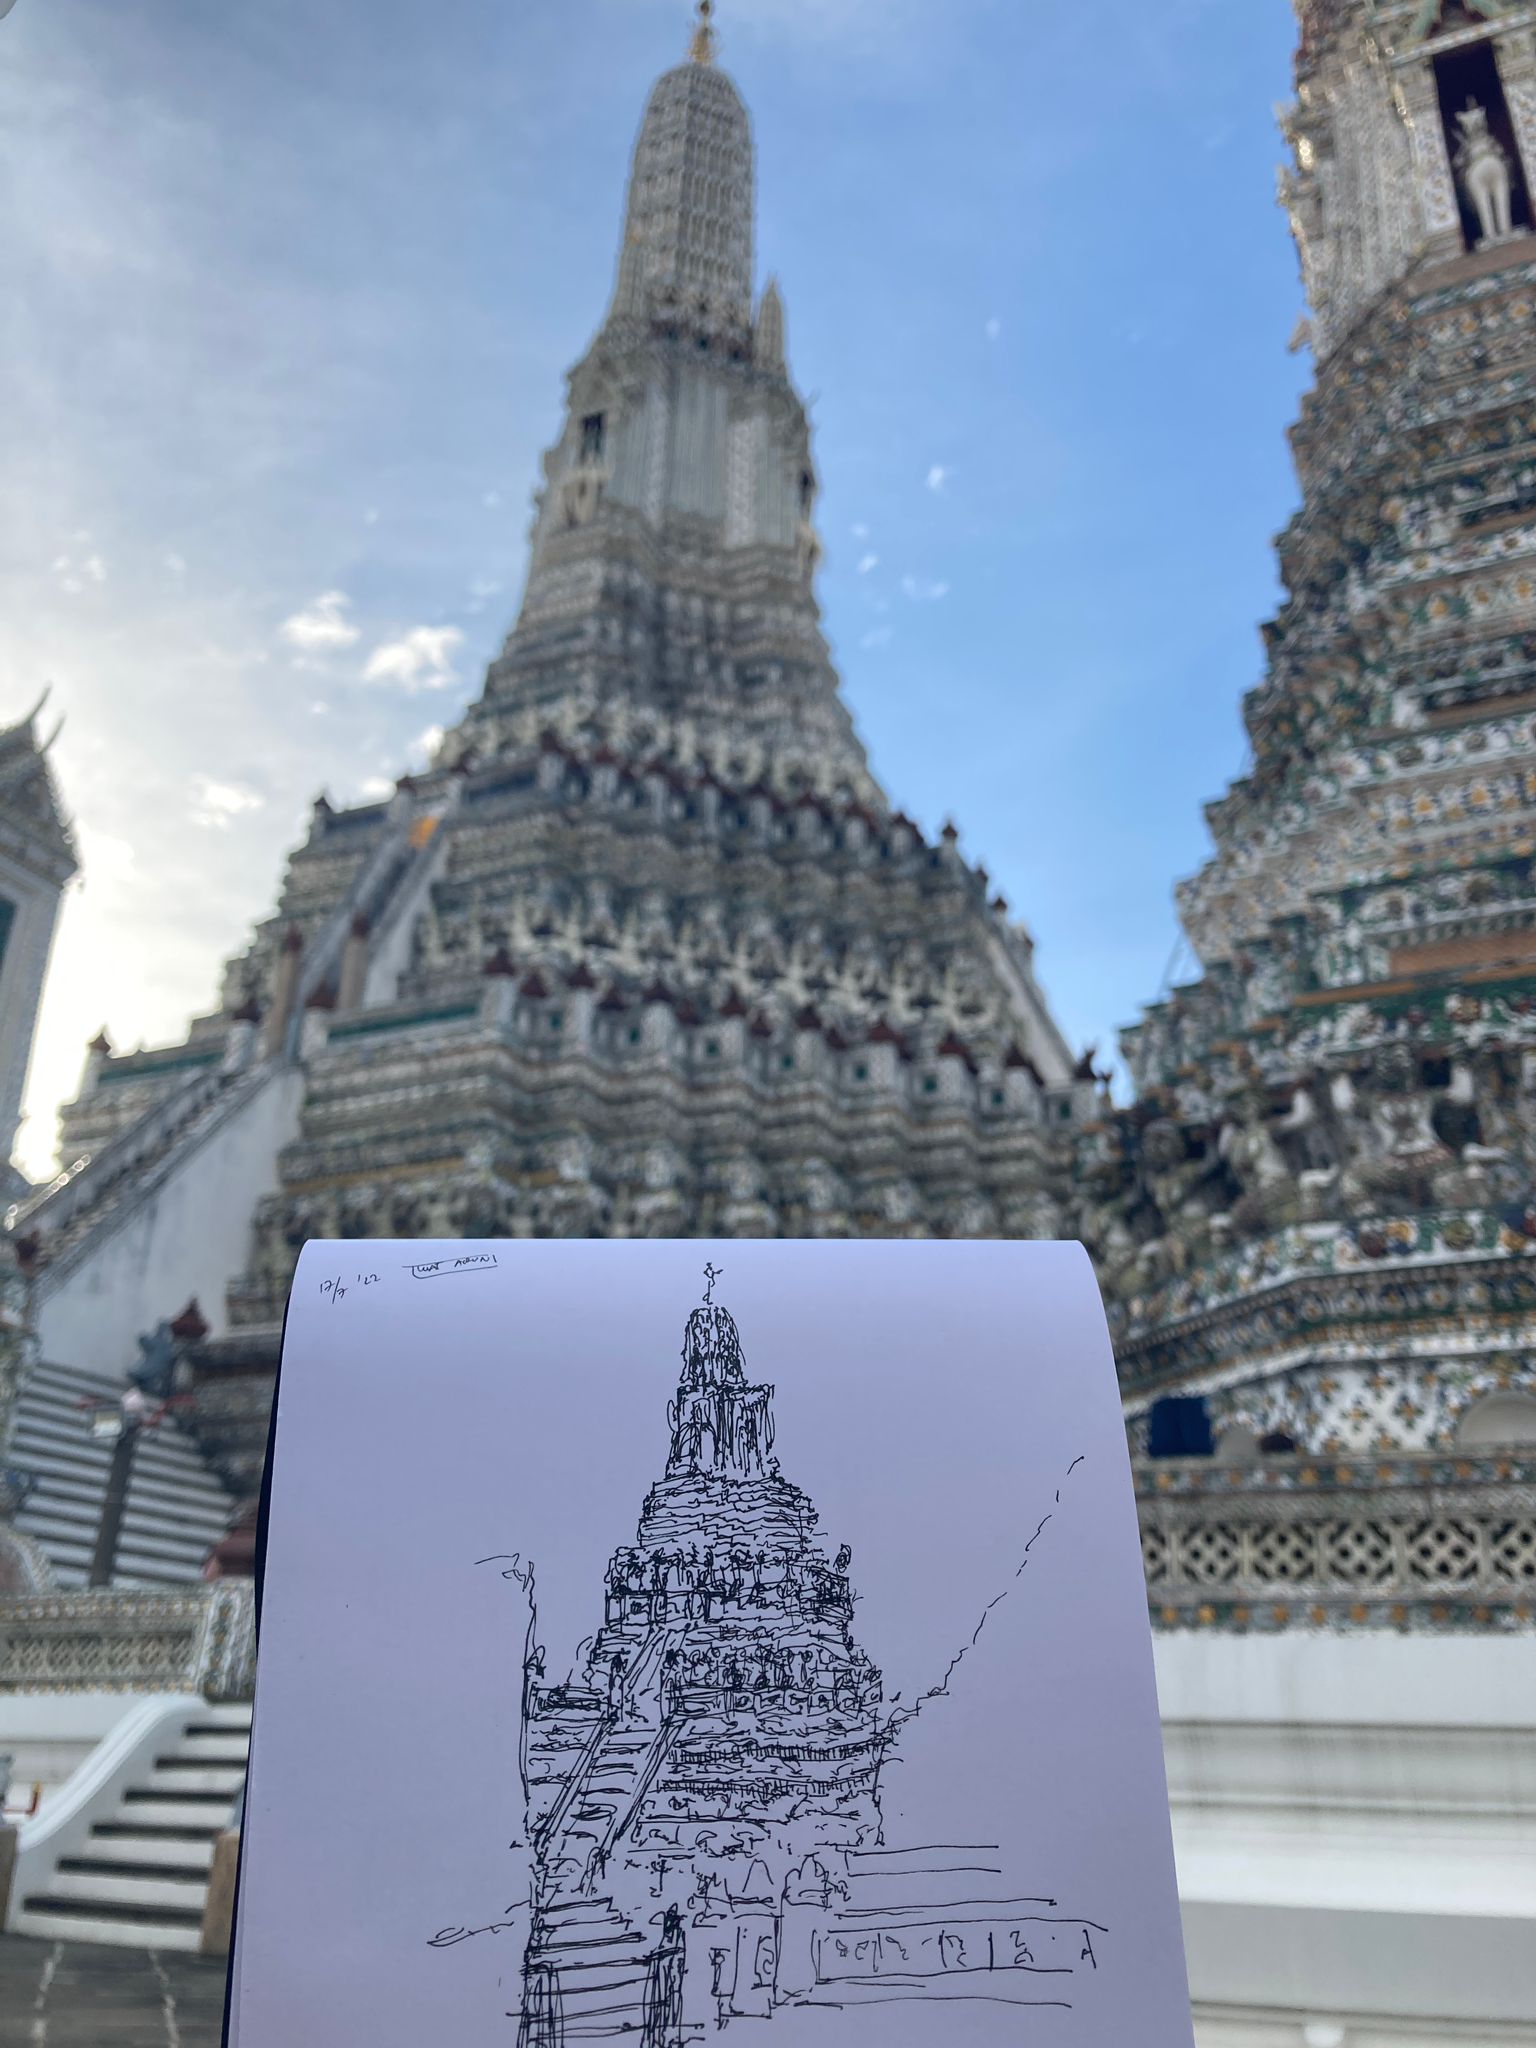 17/7 '22 WAT ARUN